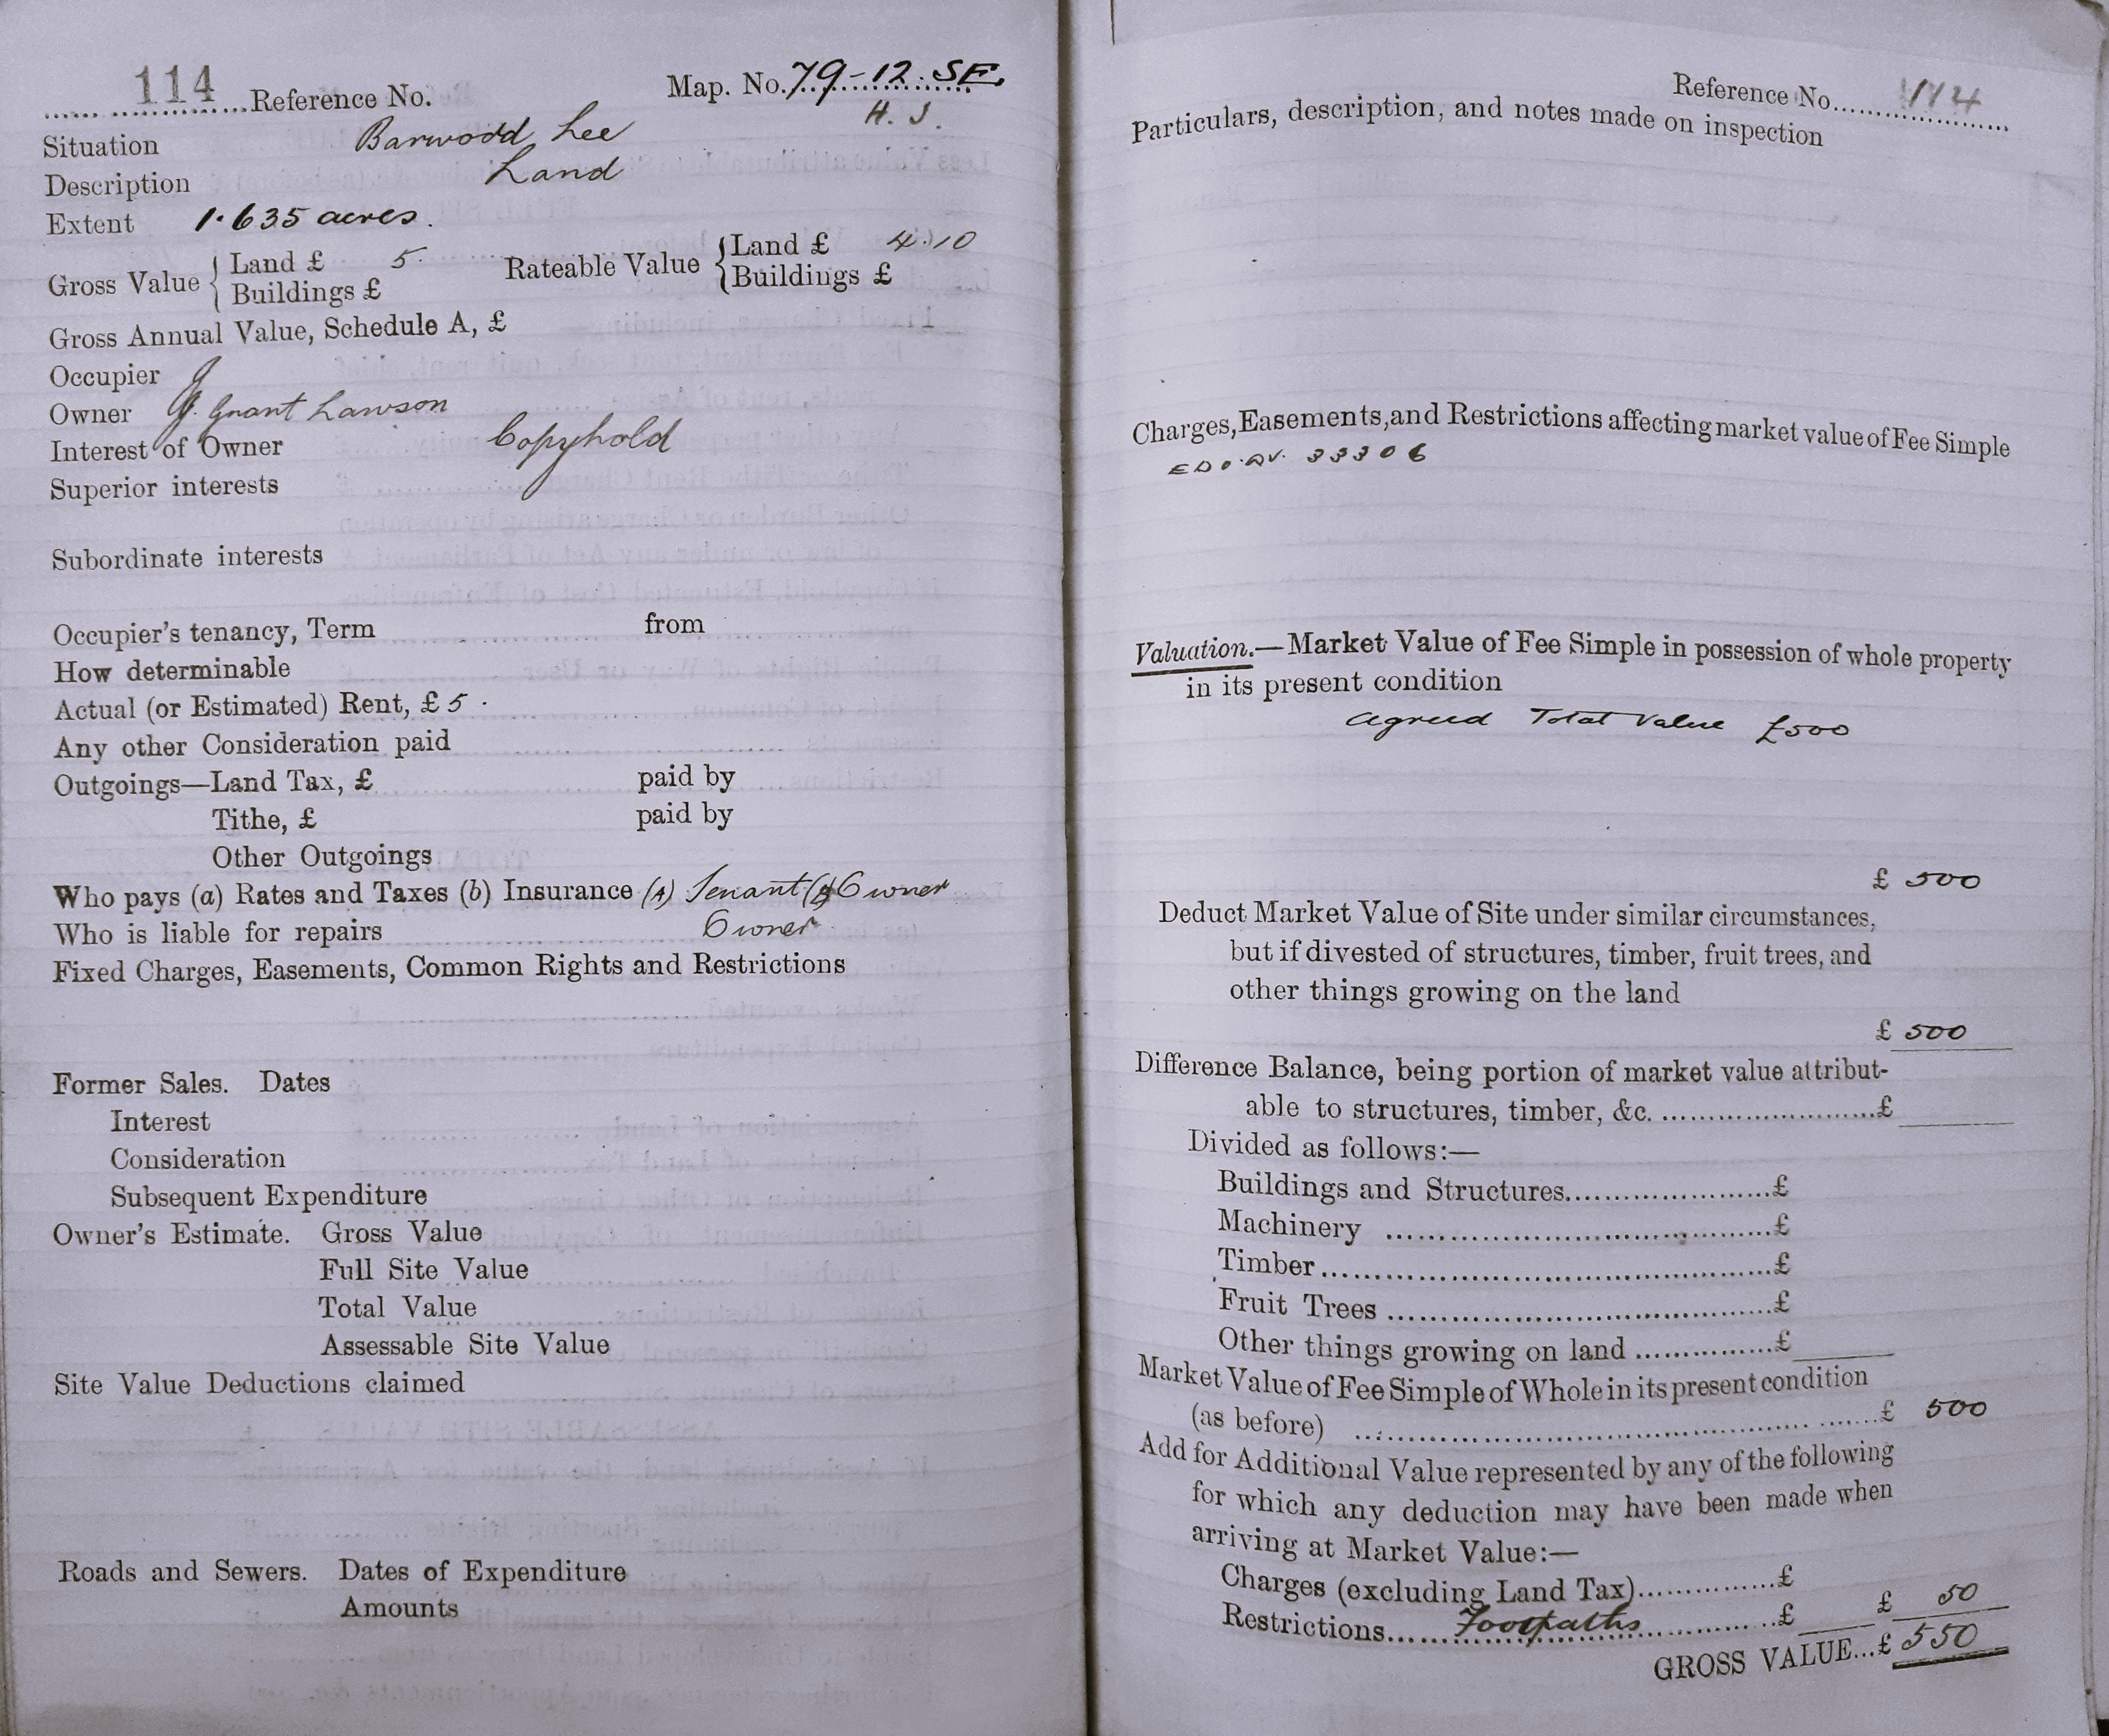 114 Reference No. Map. No. 79-12. SE.
H. J.
Situation Barwodd Lee
Description Land
Extent 1.635 acres.
Gross Value { Land £ 5. Rateable Value { Land £ 4.10
Buildings £ Buildings £
Gross Annual Value, Schedule A, £
Occupier
Owner J. Grant Lawson
Interest of Owner Copyhold
Superior interests
Subordinate interests
Occupier's tenancy, Term from
How determinable
Actual (or Estimated) Rent, £ 5.
Any other Consideration paid
Outgoings—Land Tax, £ paid by
Tithe, £ paid by
Other Outgoings
Who pays (a) Rates and Taxes (b) Insurance (A) Tenant (B) Owner
Who is liable for repairs Owner
Fixed Charges, Easements, Common Rights and Restrictions
Former Sales. Dates
Interest
Consideration
Subsequent Expenditure
Owner's Estimate. Gross Value
Full Site Value
Total Value
Assessable Site Value
Site Value Deductions claimed
Roads and Sewers. Dates of Expenditure
Amounts
Reference No. 114
Particulars, description, and notes made on inspection
Charges, Easements, and Restrictions affecting market value of Fee Simple
33306
Valuation.—Market Value of Fee Simple in possession of whole property
in its present condition
Agreed Total Value £500
£ 500
Deduct Market Value of Site under similar circumstances,
but if divested of structures, timber, fruit trees, and
other things growing on the land
£ 500
Difference Balance, being portion of market value attribut-
able to structures, timber, &c. £
Divided as follows:—
Buildings and Structures £
Machinery £
Timber £
Fruit Trees £
Other things growing on land £
Market Value of Fee Simple of Whole in its present condition
(as before) £ 500
Add for Additional Value represented by any of the following
for which any deduction may have been made when
arriving at Market Value:—
Charges (excluding Land Tax) £
Restrictions Footpaths £ £ 50
GROSS VALUE...£ 550